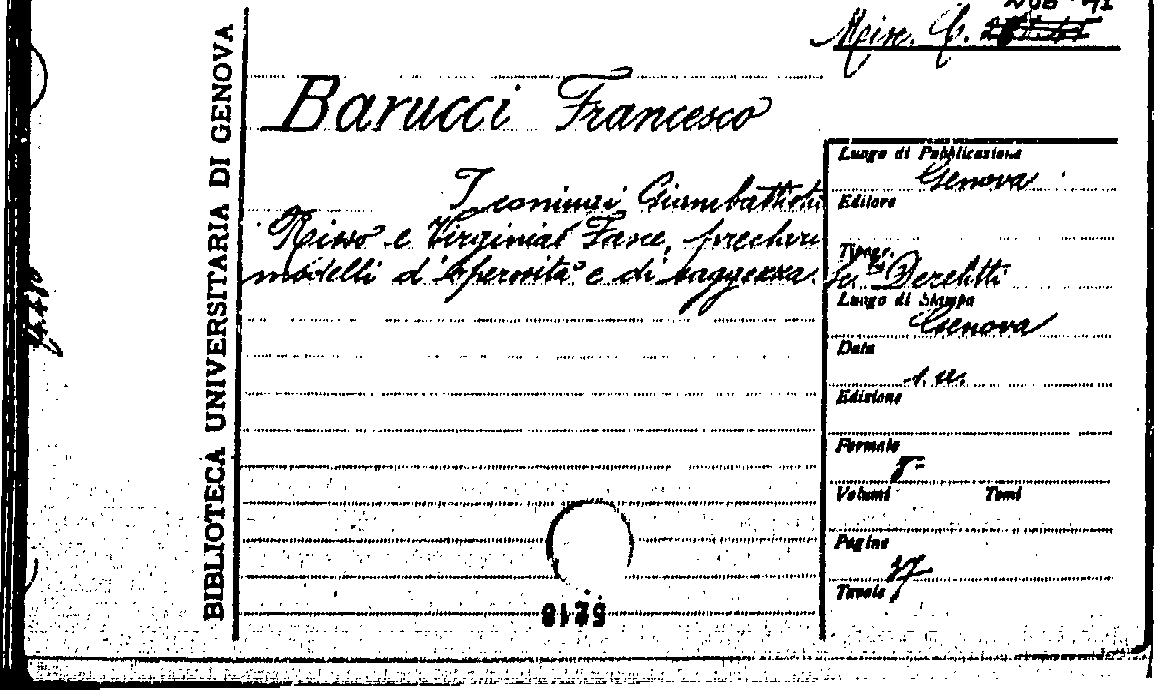 Misc. C.
BIBLIOTECA UNIVERSITARIA DI GENOVA
Barucci Francesco
I coniugi Giambattista
Risso e Virginia Fare, preclari
modelli d'operosità e di saggezza
Luogo di Pubblicazione
Genova
Editore
Tipogr.
Derelitti
Luogo di Stampa
Genova
Data
Edizione
Formato
8°
Volumi Tomi
Pagine
27
Tavole
5218